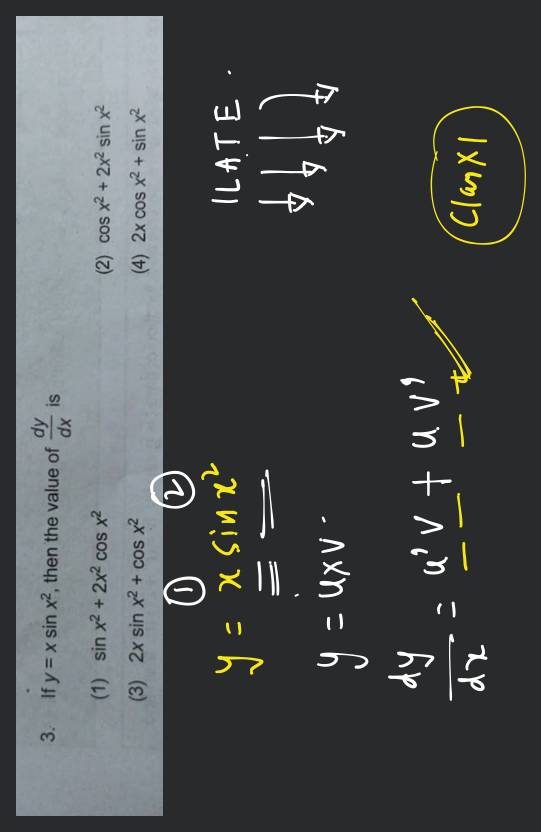 3. If y = x sin x², then the value of dy/dx is
(1) sin x² + 2x² cos x²
(2) cos x² + 2x² sin x²
(3) 2x sin x² + cos x²
(4) 2x cos x² + sin x²
① ②
y = x sin x²
ILATE.
y = u×v
dy/dx = u'v + uv'
Class XI